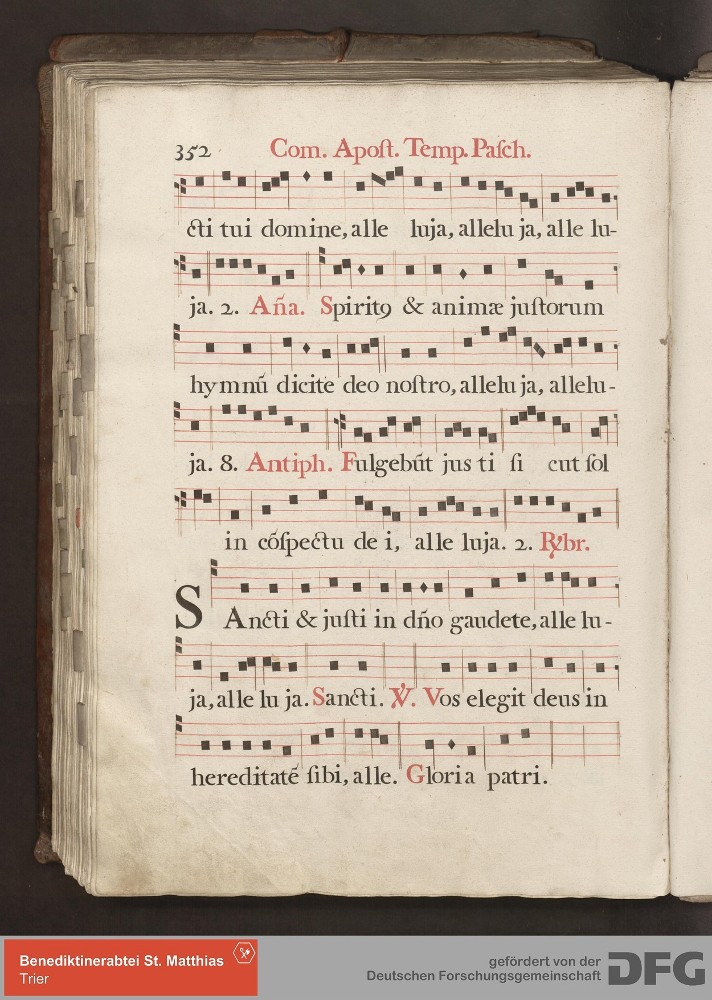 352 Com. Apoſt. Temp. Paſch.
cti tui domine, alle luja, allelu ja, alle lu-
ja. 2. Añа. Spiritꝯ & animæ juſtorum
hymnū dicite deo noſtro, allelu ja, allelu-
ja. 8. Antiph. Fulgebūt jus ti ſi cut ſol
in cōſpectu de i, alle luja. 2. R℣br.
SAncti & juſti in dño gaudete, alle lu-
ja, alle lu ja. Sancti. ℣. Vos elegit deus in
hereditatē ſibi, alle. Gloria patri.
Benediktinerabtei St. Matthias
Trier
gefördert von der
Deutschen Forschungsgemeinschaft
DFG